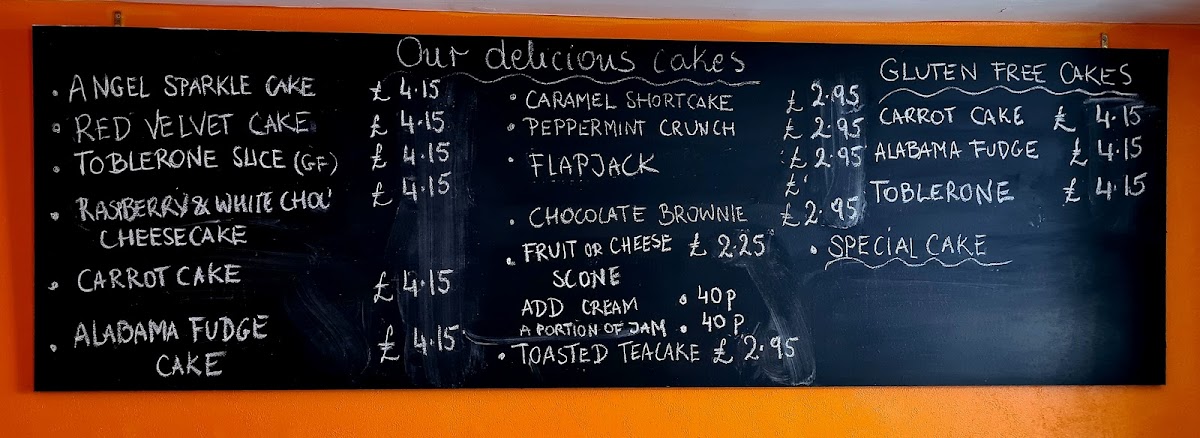 Our delicious cakes
· ANGEL SPARKLE CAKE £ 4.15
· RED VELVET CAKE £ 4.15
· TOBLERONE SLICE (GF) £ 4.15
· RASPBERRY & WHITE CHOC' £ 4.15
CHEESECAKE
· CARROT CAKE £ 4.15
· ALABAMA FUDGE £ 4.15
CAKE
· CARAMEL SHORTCAKE £ 2.95
· PEPPERMINT CRUNCH £ 2.95
· FLAPJACK £ 2.95
£
· CHOCOLATE BROWNIE £ 2.95
· FRUIT OR CHEESE £ 2.25
SCONE
ADD CREAM · 40p
A PORTION OF JAM · 40p
· TOASTED TEACAKE £ 2.95
GLUTEN FREE CAKES
CARROT CAKE £ 4.15
ALABAMA FUDGE £ 4.15
TOBLERONE £ 4.15
· SPECIAL CAKE